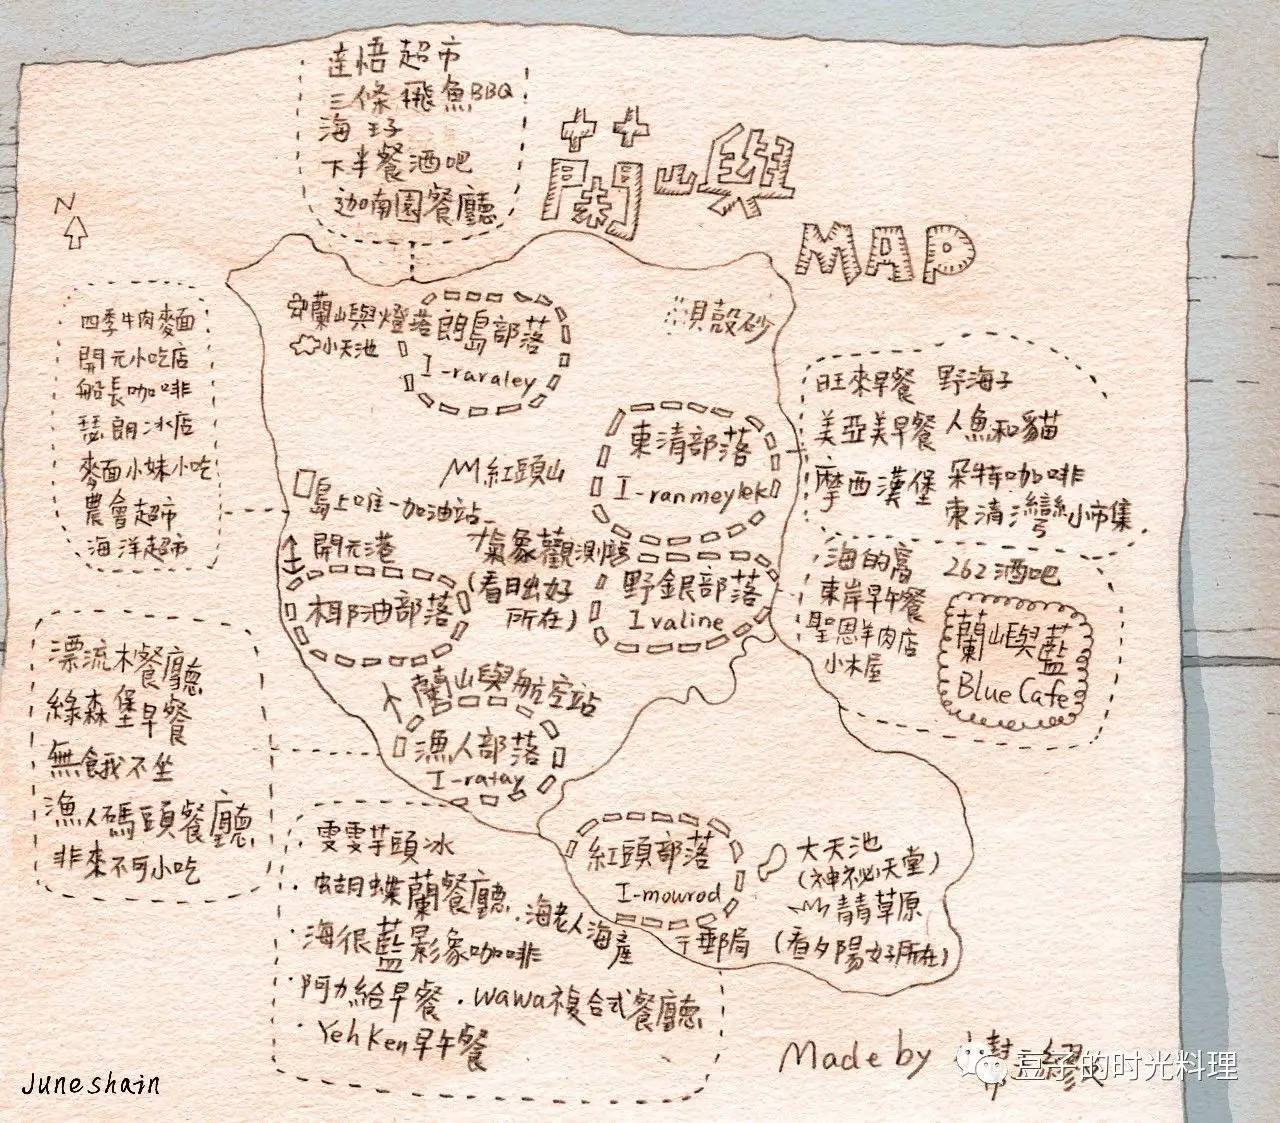 達悟超市
三條飛魚BBQ
海王子
下半餐酒吧
迦南園餐廳
蘭嶼
MAP
N
四季牛肉麥面
開元小吃店
船長咖啡
瑟朗冰店
麥面小妹小吃
農會超市
海洋超市
蘭嶼燈塔
小天池
朗島部落
I-raraley
貝殼砂
東清部落
I-ranmeylek
旺來早餐 野海子
美亞美早餐 人魚和貓
摩西漢堡 朵特咖啡
東清灣小市集
紅頭山
島上唯一加油站
開元港
氣象觀測
(看日出好
所在)
椰油部落
野銀部落
Ivaline
海的窩
東岸早午餐
聖恩羊肉店
小木屋
262酒吧
蘭嶼藍
Blue Cafe
漂流木餐廳
綠森堡早餐
無餓不坐
漁人碼頭餐廳
非來不可小吃
蘭嶼航空站
漁人部落
I-ratay
雯雯芋頭冰
·蝴蝶蘭餐廳
·海老人海產
·海很藍影象咖啡
·阿力給早餐
·wawa複合式餐廳
·Yeh Ken早午餐
紅頭部落
I-mowrod
郵局
大天池
(神祕天堂)
青青草原
(看夕陽好所在)
Made by
豆子的时光料理
Juneshain